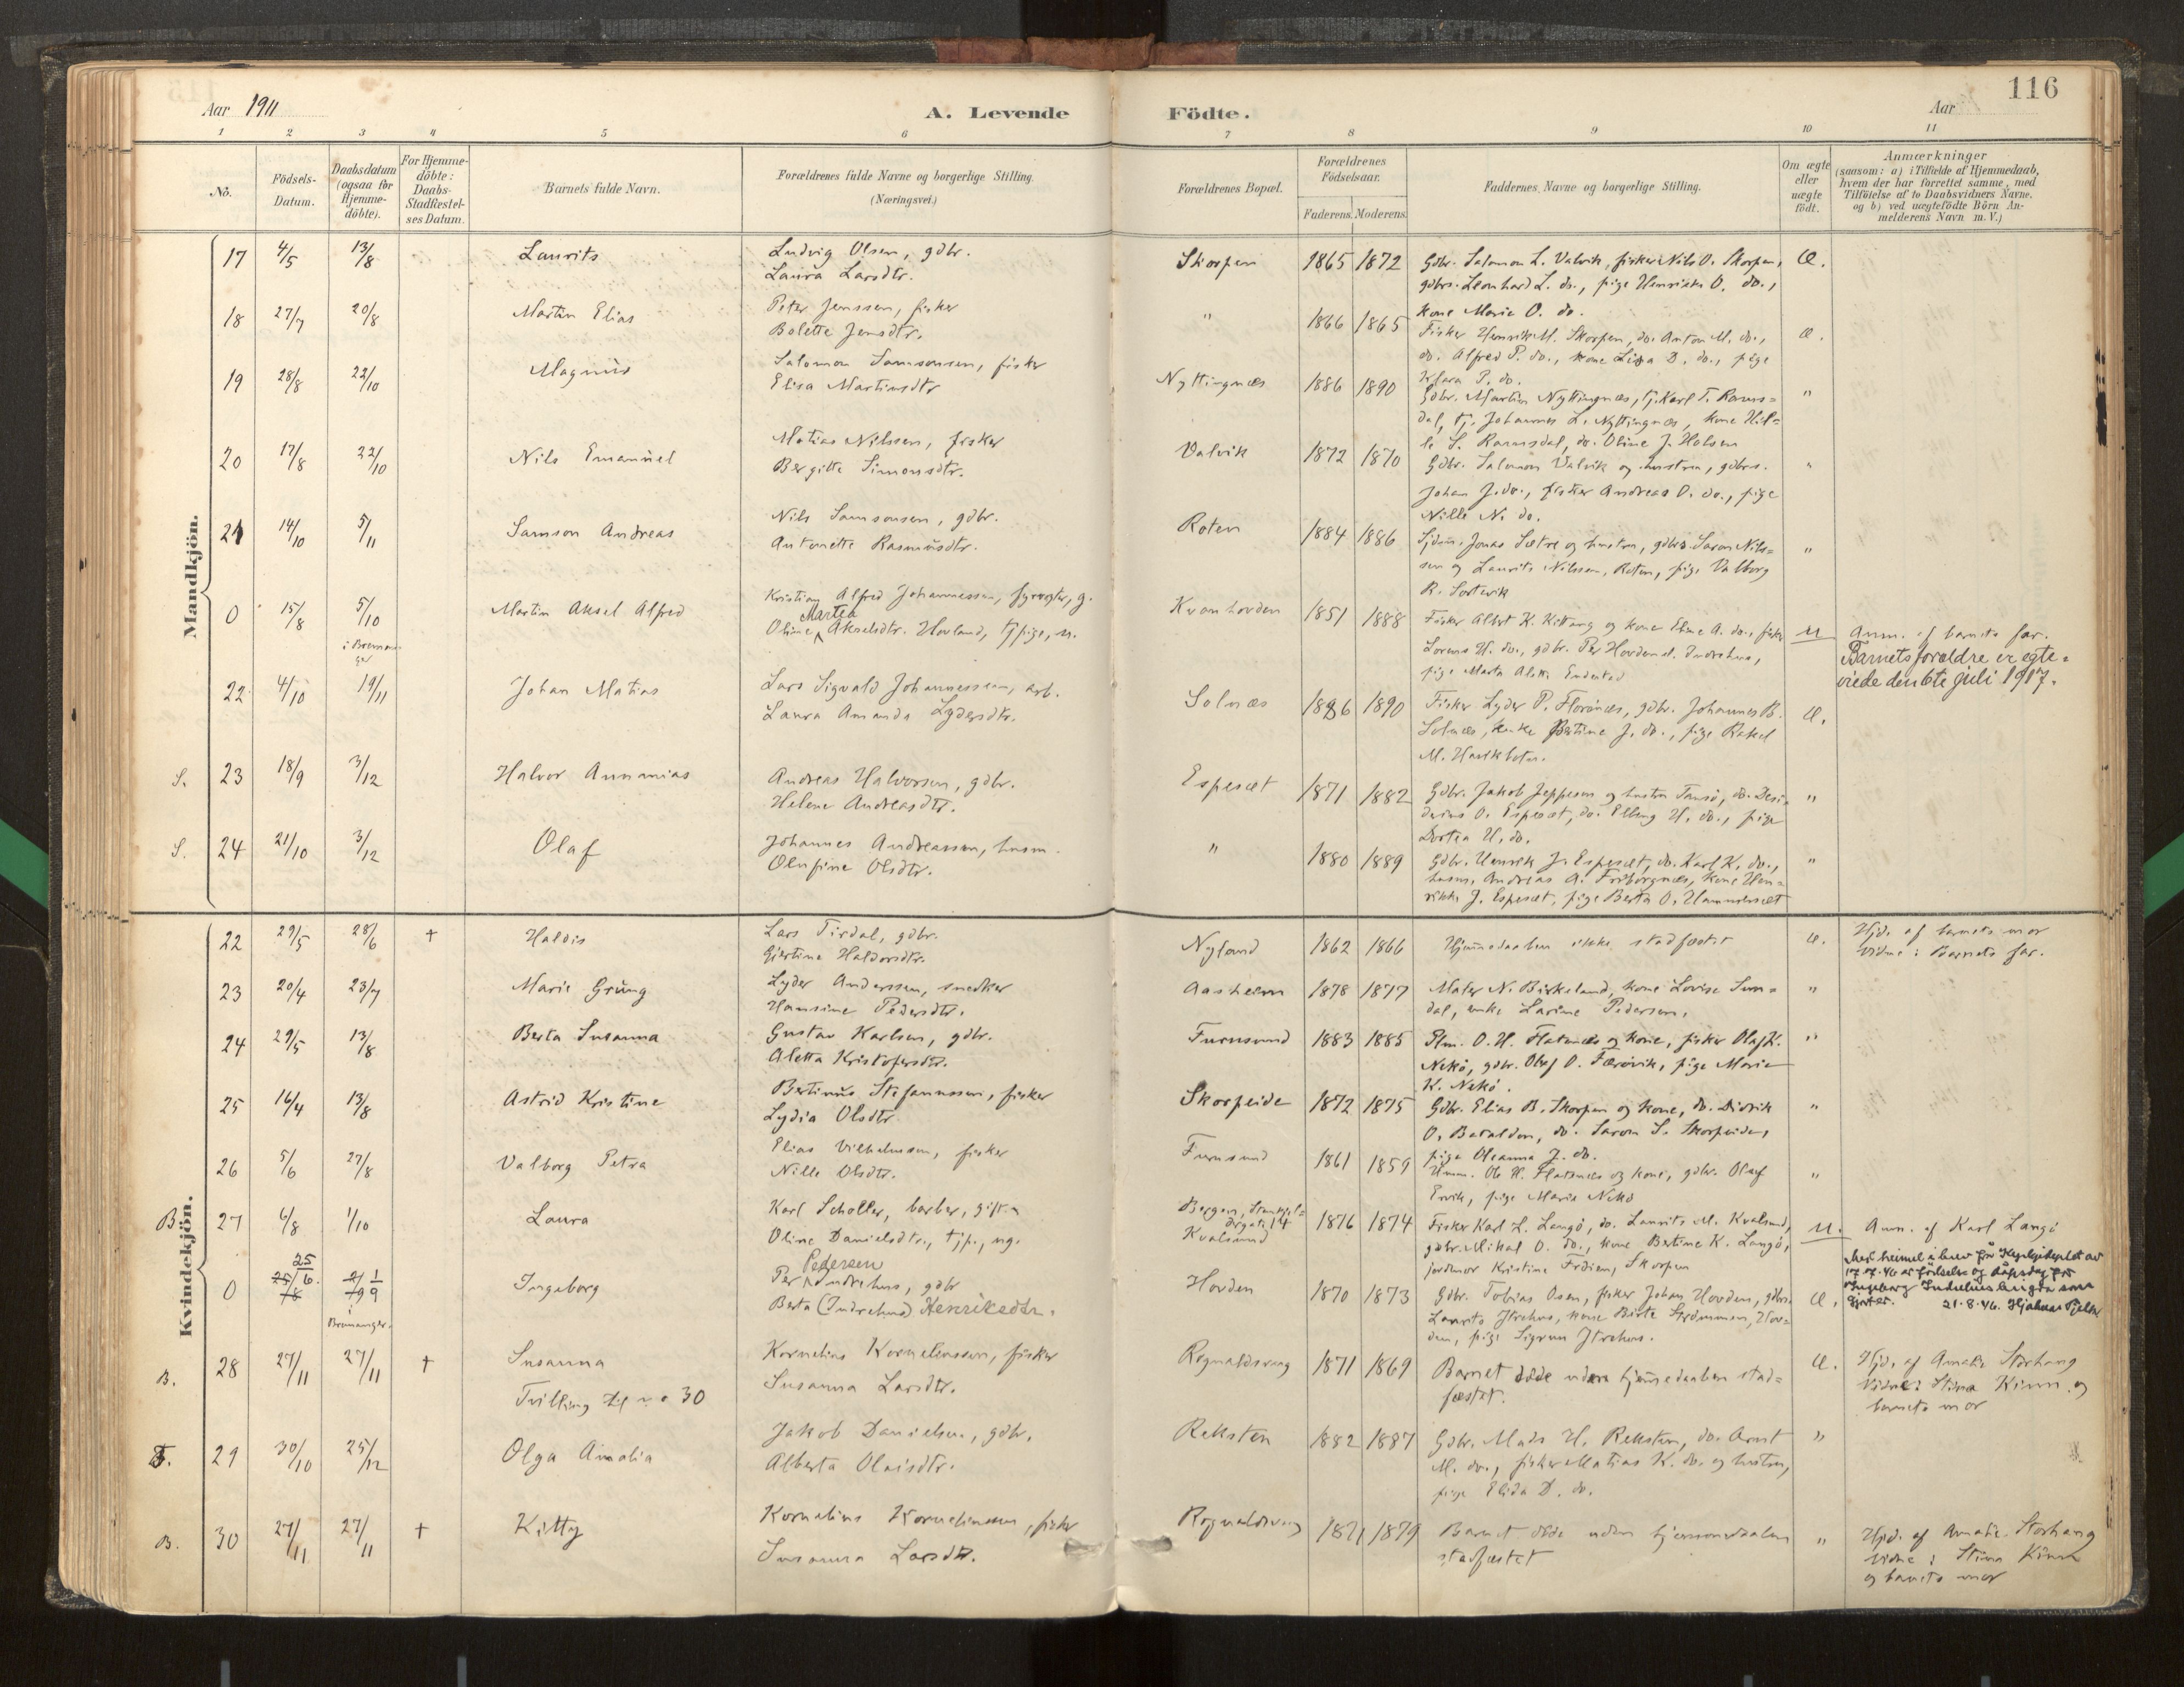 116
Aar 1911
A. Levende Födte.
Aar
1 2 3 4 5 6 7 8 9 10 11
No.
Födsels-Datum.
Daabsdatum (ogsaa for Hjemmedöbte).
For Hjemmedöbte: Daabs-Stadfæstelses Datum.
Barnets fulde Navn.
Forældrenes fulde Navne og borgerlige Stilling. (Næringsvei.)
Forældrenes Bopæl.
Forældrenes Födselsaar.
Faderens. Moderens.
Faddernes Navne og borgerlige Stilling.
Om ægte eller uægte födt.
Anmærkninger
(saasom: a) i Tilfælde af Hjemmedaab, hvem der har forrettet samme, med Tilföielse af to Daabsvidners Navne. og b) ved uægtefödte Börn Anmelderens Navn m. V.)
Mandkjön.
17 4/5 13/8 Laurits
Ludvig Olsen, gdbr.
Laura Larsdtr.
Skorpen 1865 1872
Gdbr. Salomon L. Valvik, fisker Nils O. Skorpen,
gdbrs. Leonhard L. do., pige Henrikke O. do.,
kone Marie O. do.
Æ.
18 27/7 20/8 Martin Elias
Peter Jenssen, fisker
Bolette Jensdtr.
" 1866 1865
Fisker Henrik M. Skorpen, do. Anton M. do.,
do. Alfred P. do., kone Lisa D. do., pige
Klara P. do.
Æ.
19 28/8 22/10 Magnus
Salomon Samsonsen, fisker
Elisa Martinsdtr
Nyttingnæs 1886 1890
Gdbr. Martin Nyttingnæs, tj. Karl T. Ramsdal, tj. Johannes L. Nyttingnæs, kone Nille S. Ramsdal, do. Oline J. Halsen
"
20 17/8 22/10 Nils Emanuel
Matias Nilssen, fisker
Bergitte Simonsdtr.
Valvik 1872 1870
Gdbr. Salomon Valvik og hustru, gdbrs.
Johan J. do., fisker Andreas O. do., pige
Nille N. do.
"
21 14/10 5/11 Samson Andreas
Nils Samsonsen, gdbr.
Antonette Rasmusdtr.
Roten 1884 1886
Jonas Sætre og hustru, gdbrs. Saron Nilssen og Laurits Nilssen, Roten, pige Valborg
R. Sortevik
"
0 15/8 5/10 Martin Aksel Alfred
i Bremanger
Kristian Alfred Johannessen, fyrvogter, g.
Oline Martea Akselsdtr. Hovland, tj.pige, u.
Kvanhovden 1851 1888
Fisker Albert K. Kittang og kone Eline A. do., fisker
Lorens H. do., gdbr. Per Hovden Indrehus,
pige Marta Alette Endestad
U
Anm. af barnets far.
Barnets forældre er egteviede den 6te juli 1917.
22 4/10 19/11 Johan Matias
Lars Sigvald Johannessen, arb.
Laura Amanda Lydersdtr.
Solnæs 1886 1890
Fisker Lyder P. Florönæs, gdbr. Johannes B.
Solnæs, enke Bertine J. do., pige Rakel
M. Havikbotn.
Æ.
S. 23 18/9 3/12 Halvor Annanias
Andreas Halvorsen, gdbr.
Helene Andreasdtr.
Espeset 1871 1882
Gdbr. Jakob Jeppesen og hustru Tansö, do. Desiderius O. Espeset, do. Elling H. do., pige
Dortea H. do.
"
S. 24 21/10 3/12 Olaf
Johannes Andreassen, husm.
Olufine Olsdtr.
" 1880 1889
Gdbr. Henrik J. Espeset, do. Karl K. do.,
husm. Andreas A. Friborgnæs, kone Henrikke J. Espeset, pige Berta O. Hammerset
"
Kvindekjön.
22 29/5 28/6 + Haldis
Lars Tirdal, gdbr.
Gjertine Haldorsdtr.
Nyland 1862 1866
Hjemmedaaben ikke stadfæstet
Æ.
Hjd. af barnets mor
Vidne: Barnets far.
23 20/4 23/7 Marie Grung
Lyder Anderssen, snedker
Hansine Pedersdtr.
Aasheim 1878 1877
Maler N. Birkeland, kone Lovise Sundal, enke Larine Pedersen.
"
24 29/5 13/8 Berta Susanna
Gustav Karlsen, gdbr.
Aletta Kristofersdtr.
Furusund 1883 1885
O. H. Flatenæs og kone, fisker Olaf K.
Nekö, gdbr. Olaf O. Færövik, pige Marie
K. Nekö.
"
25 16/4 13/8 Astrid Kristine
Bertinus Stefanussen, fisker
Lydia Olsdtr
Skorpeide 1872 1875
Gdbr. Elias B. Skorpen og kone, do. Didrik
O. Batalden, do. Saron S. Skorpeide,
pige Oleanna J. do.
"
26 5/6 27/8 Valborg Petra
Elias Vilhelmsen, fisker
Nille Olsdtr.
Furusund 1861 1859
Husm. Ole H. Flatenæs og kone, gdbr. Olaf
Ervik, pige Marie Nekö
"
B. 27 6/8 1/10 Laura
Karl Scholler, barber, gift
Oline Danielsdtr., tjp., ug.
Bergen, 14
Kvalsund 1876 1874
Fisker Karl L. Langö, do. Laurits M. Kvalsund,
gdbr. Mikal O. do., kone Bertine K. Langö,
jordmor Kristine Fröien, Skorpen
U.
Anm. af Karl Langö
0 25/6 1/9 Ingeborg
i Bremanger.
Per Pedersen Indrehus, gdbr
Berta (Indrehus) Henriksdtr.
Hovden 1870 1873
Gdbr. Tobias Osen, fisker Johan Hovden, gdbrs.
Laurits Ytrehus, kone Birte Strömmen, Hovden, pige Sigrun Ytrehus.
Æ.
Med heimel i brev frå Kyrkjedeptet av
17.7.46 er födsels- og dåpsdag for
Ingeborg Indrehus brigda som
gjort er. 21.8.46. Hjalmar
B. 28 27/11 27/11 + Susanna
Tvilling til no 30
Kornelius Korneliussen, fisker
Susanna Larsdtr.
Rognaldsvaag 1871 1869
Barnet döde uden hjemmedaaben stadfæstet.
Æ.
Hjd. af Amalie Storhaug
Vidne: Stina Kinn og
barnets mor
29 30/10 25/12 Olga Amalia
Jakob Danielsen, gdbr.
Alberta Olaisdtr.
Reksten 1882 1887
Gdbr. Mads H. Reksten, do. Arnt
M. do., fisker Matias K. do. og hustru,
pige Elida D. do.
"
B. 30 27/11 27/11 + Kitty
Kornelius Korneliussen, fisker
Susanna Larsdtr.
Rognaldsvaag 1871 1879
Barnet döde uden hjemmedaaben
stadfæstet
"
Hjd. af Amalie Storhaug
Vidne: Stina Kinn
og barnets mor